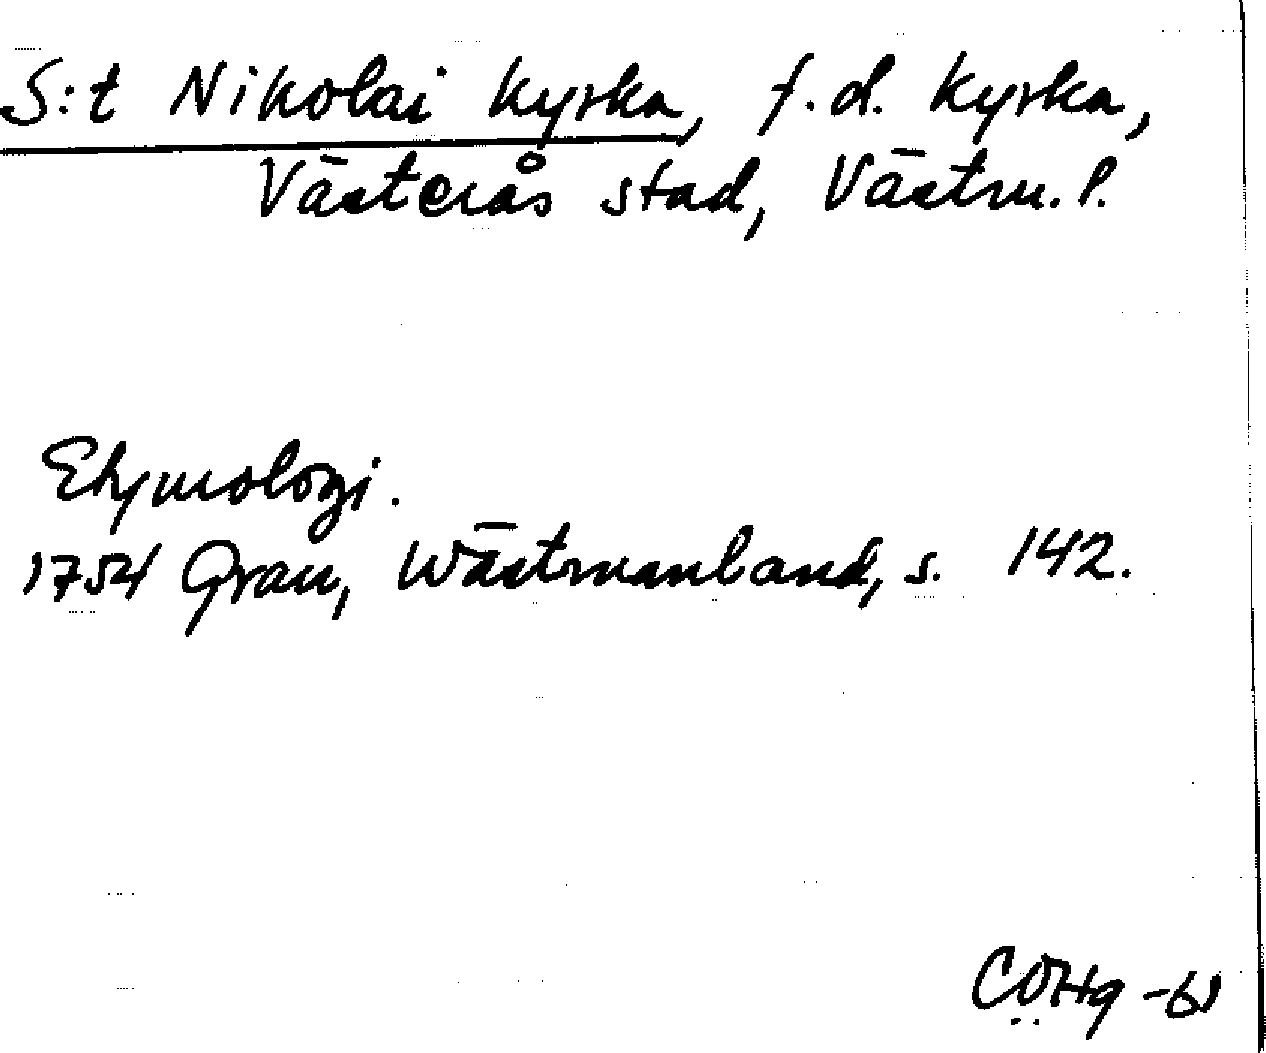 S:t Nikolai kyrka, f.d. kyrka,
Västerås stad, Västm. l.
Etymologi.
1754 Grau, Wästmanland, s. 142.
CÖHg -61